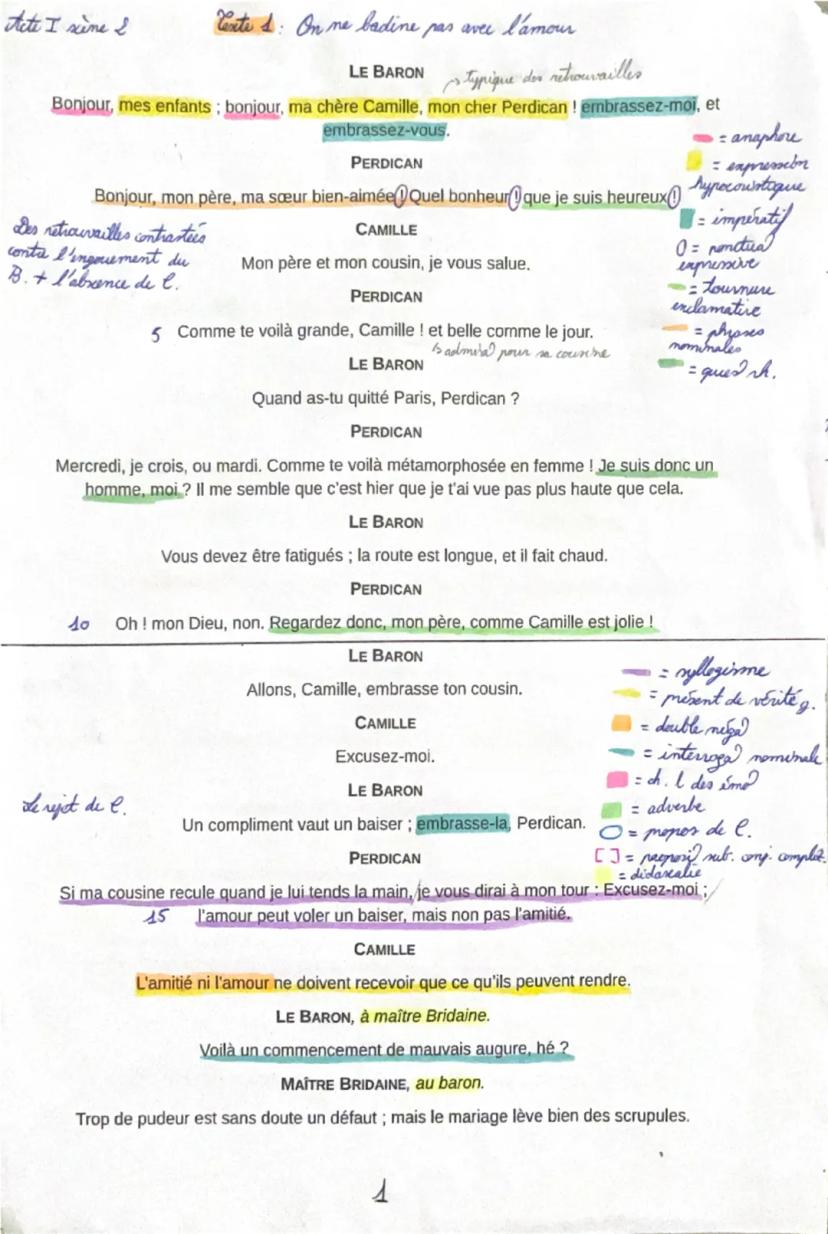 Acte I scène 2
Texte 1 : On ne badine pas avec l'amour
LE BARON
→ typique des retrouvailles
Bonjour, mes enfants ; bonjour, ma chère Camille, mon cher Perdican ! embrassez-moi, et
embrassez-vous.
= anaphore
PERDICAN
= expression
hypocoristique
Bonjour, mon père, ma sœur bien-aimée ! Quel bonheur ! que je suis heureux !
= impératif
Des retrouvailles contrastées
contre l'engouement du
B. + l'absence de C.
CAMILLE
Mon père et mon cousin, je vous salue.
O = ponctua°
expressive
PERDICAN
= tournure
exclamative
5 Comme te voilà grande, Camille ! et belle comme le jour.
↳ admira° pour sa cousine
= phrases
nominales
LE BARON
= ques° rh.
Quand as-tu quitté Paris, Perdican ?
PERDICAN
Mercredi, je crois, ou mardi. Comme te voilà métamorphosée en femme ! Je suis donc un
homme, moi ? Il me semble que c'est hier que je t'ai vue pas plus haute que cela.
LE BARON
Vous devez être fatigués ; la route est longue, et il fait chaud.
PERDICAN
10 Oh ! mon Dieu, non. Regardez donc, mon père, comme Camille est jolie !
LE BARON
= syllogisme
Allons, Camille, embrasse ton cousin.
= présent de vérité g.
CAMILLE
= double néga°
Excusez-moi.
= interroga° nominale
LE BARON
= ch. l des émo°
Le rejet de C.
= adverbe
Un compliment vaut un baiser ; embrasse-la, Perdican.
O = propos de C.
PERDICAN
[ ] = proposi° sub. conj. complét.
= didascalie
Si ma cousine recule quand je lui tends la main,/je vous dirai à mon tour : Excusez-moi ;/
15 l'amour peut voler un baiser, mais non pas l'amitié.
CAMILLE
L'amitié ni l'amour ne doivent recevoir que ce qu'ils peuvent rendre.
LE BARON, à maître Bridaine.
Voilà un commencement de mauvais augure, hé ?
MAÎTRE BRIDAINE, au baron.
Trop de pudeur est sans doute un défaut ; mais le mariage lève bien des scrupules.
1